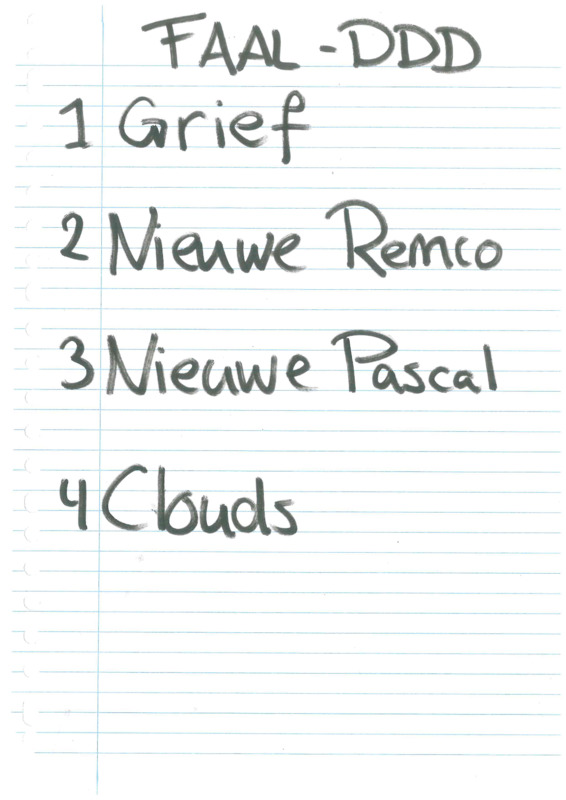 FAAL-DDD
1 Grief
2 Nieuwe Remco
3 Nieuwe Pascal
4 Clouds